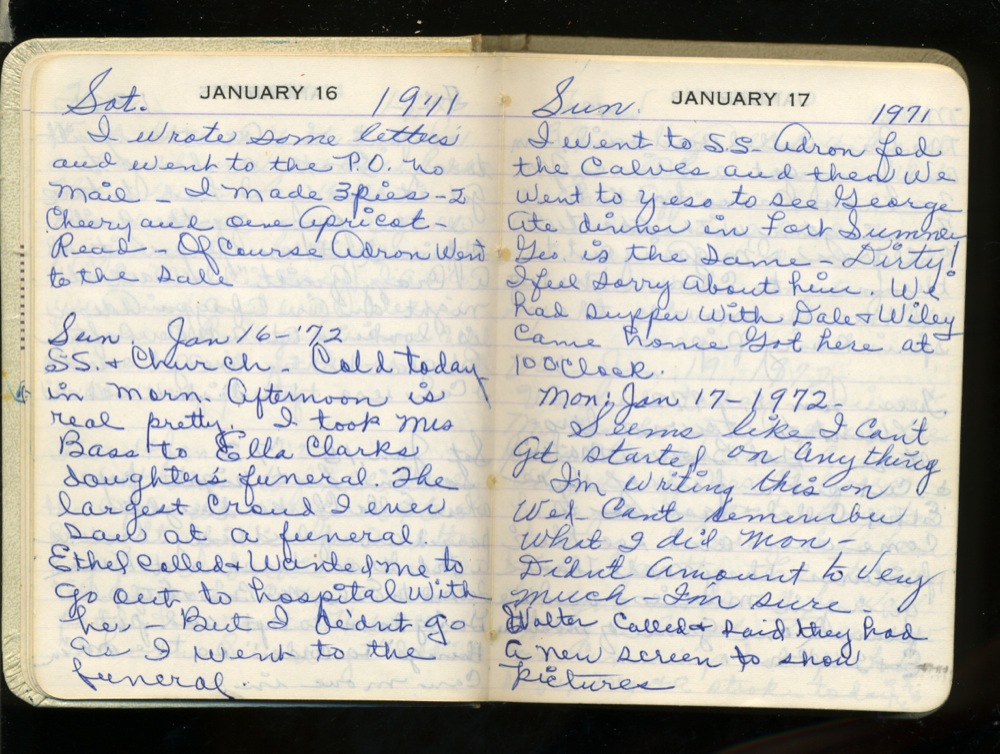 JANUARY 16
Sat. 1971
I wrote some letters
and went to the P.O. no
mail - I made 3 pies - 2
Cherry and one Apricot -
Read - Of Course Adron Went
to the sale
Sun. Jan 16-'72
SS. & Church - Cold today
in morn. Afternoon is
real pretty. I took Mrs
Bass to Ella Clarks
daughters funeral. The
largest Croud I ever
saw at a funeral.
Ethel Called & Wanted me to
go out to hospital With
her - But I didnt go
as I went to the
funeral.
JANUARY 17
Sun. 1971
I went to S.S. Adron fed
the Calves and then We
Went to Yeso to see George
Ate dinner in Fort Sumner
Geo is the same - Dirty!
I feel sorry About him. We
had supper With Dale & Wiley
Came home Got here at
10 OClock.
Mon; Jan 17-1972-
Seems like I Can't
Get started on Anything
I'm writing this on
Wed- Cant remember
What I did Mon-
Didnt Amount to Very
much - I'm sure -
Walter Called & said they had
A new screen to show
pictures